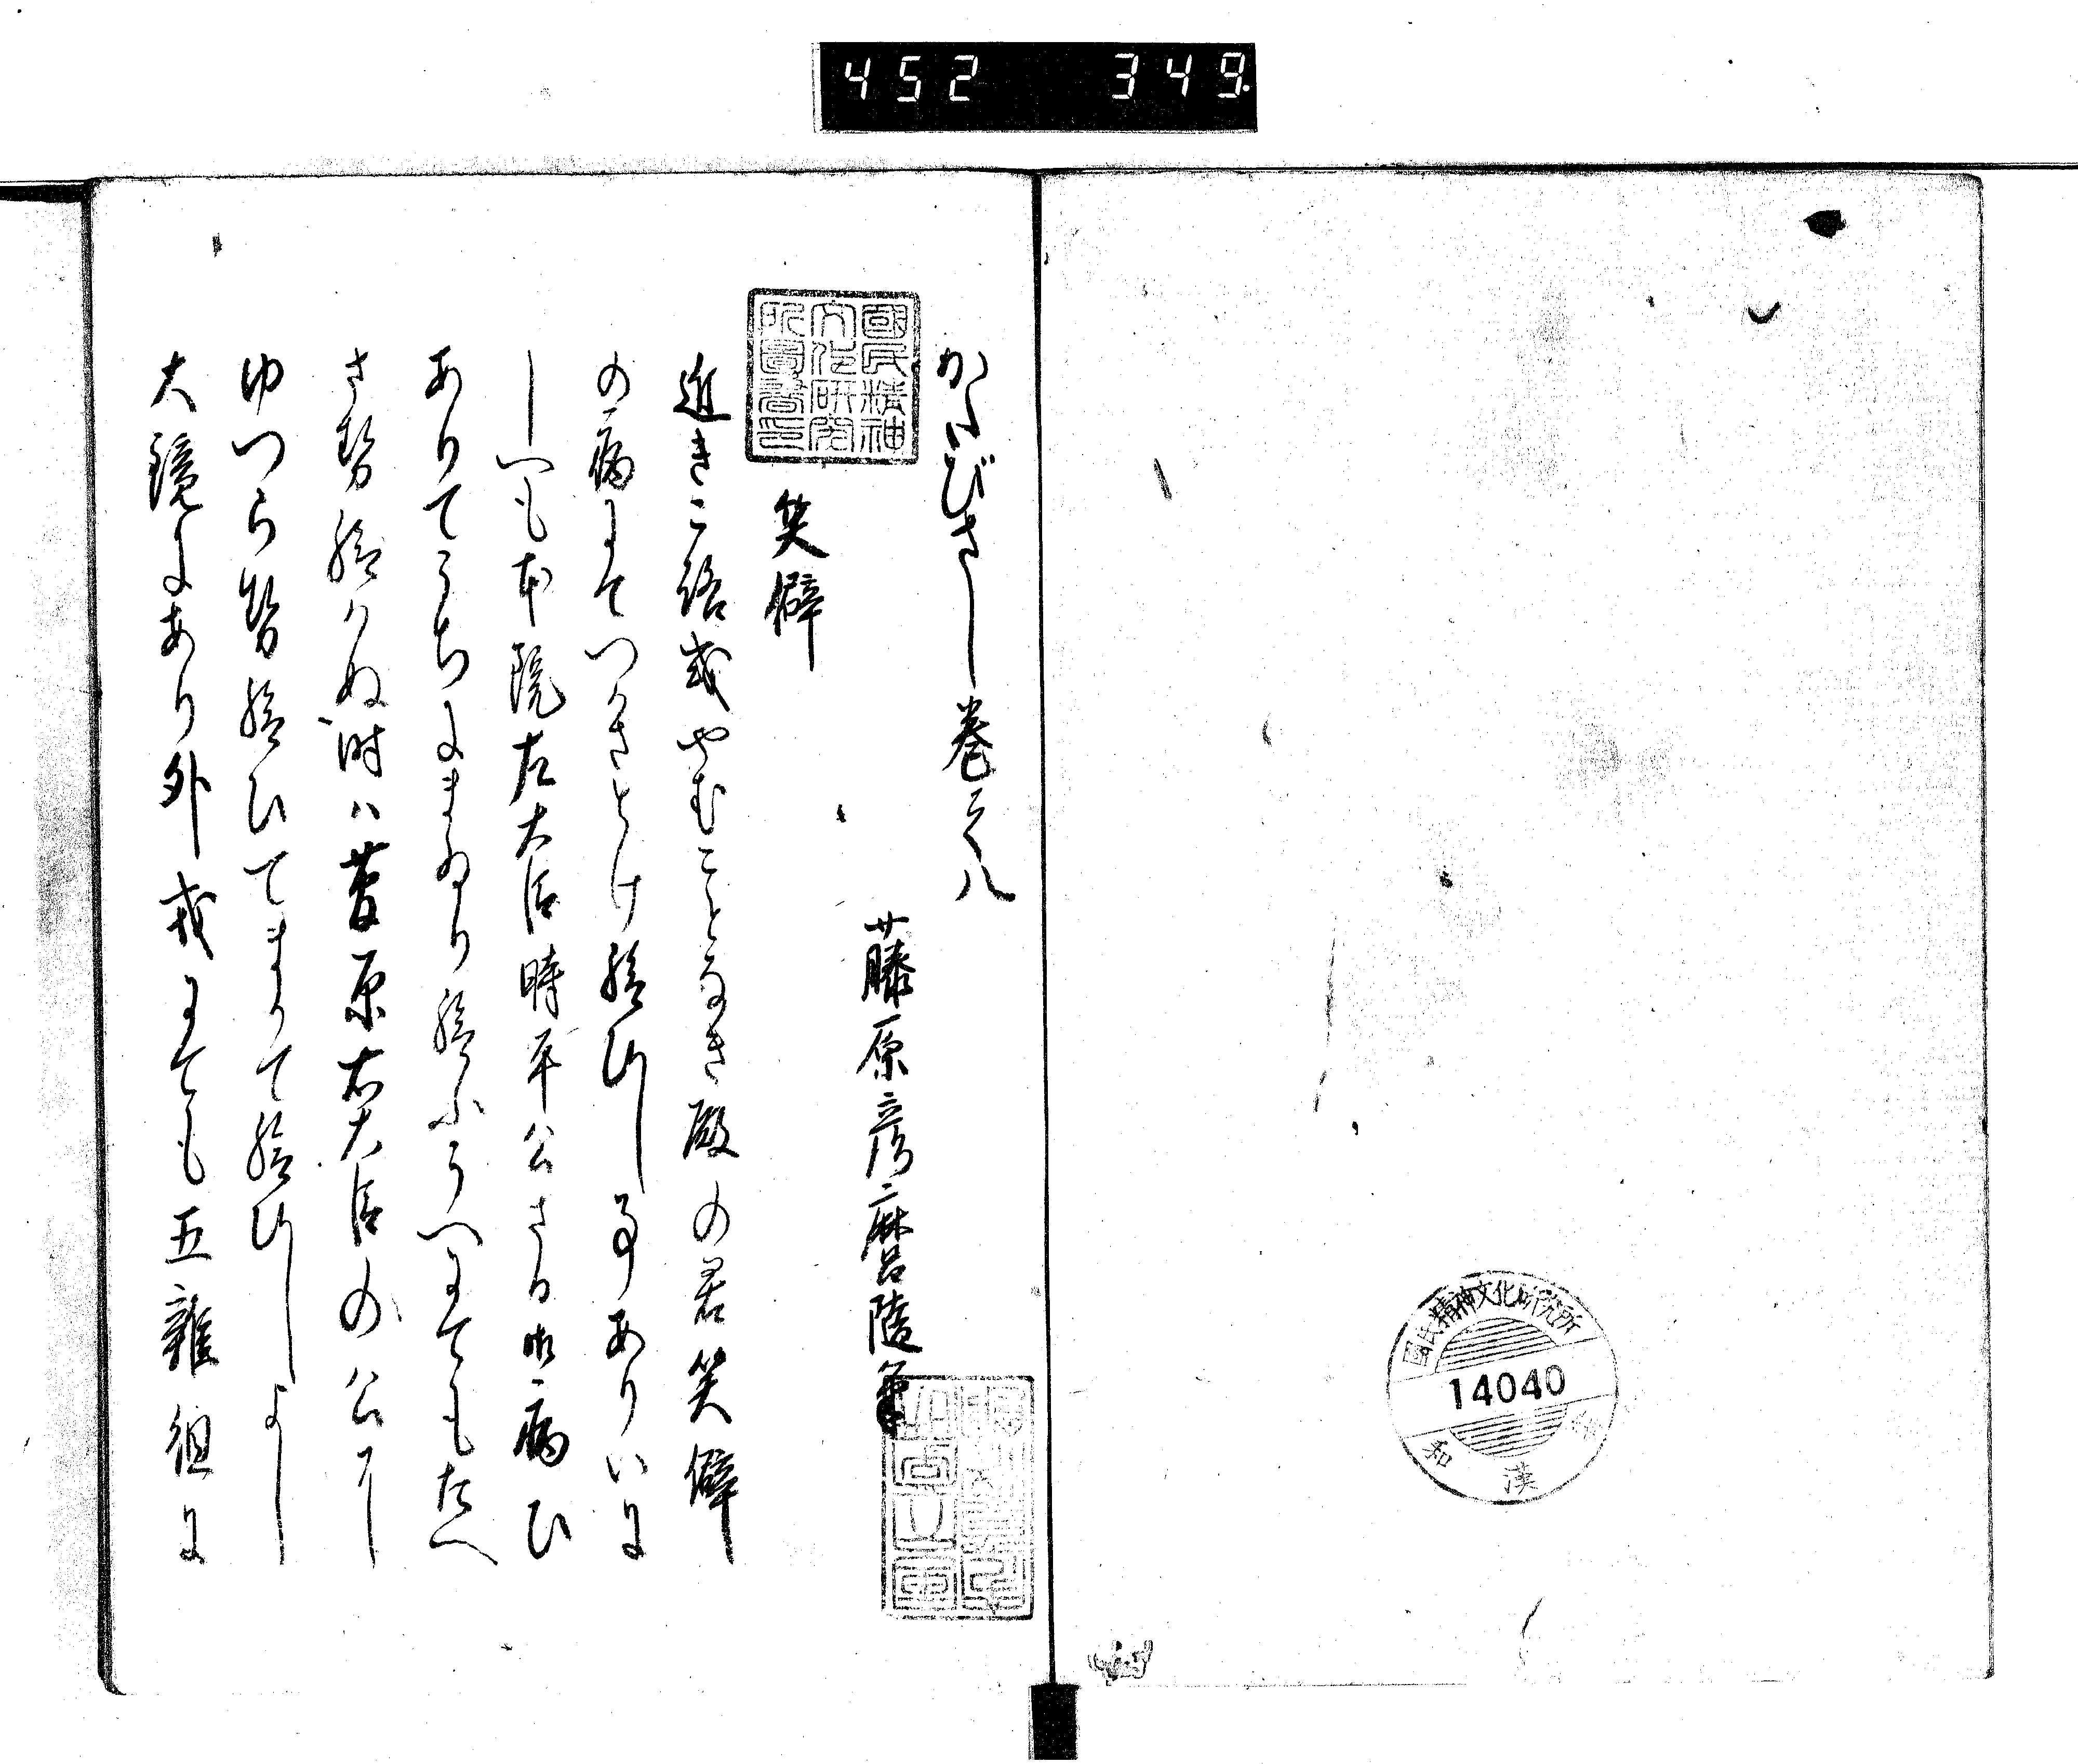 452 349.
かたびさし巻之八
藤原彦麿随筆
國民精神
文化研究
所圖書印
笑癖
近きころ或やむことなき殿の君笑癖
の病にてつかさとけ給ひし事ありいに
しへも本院左大臣時平公さる御病ひ
ありてうちにまゐり給ふうへにてもたへ
させ給はぬ時ハ菅原右大臣の公に
ゆつらせ給ひてまかて給ひしよし
大鏡にあり外戎にても五雑俎に
國民精神文化研究所
14040
和漢